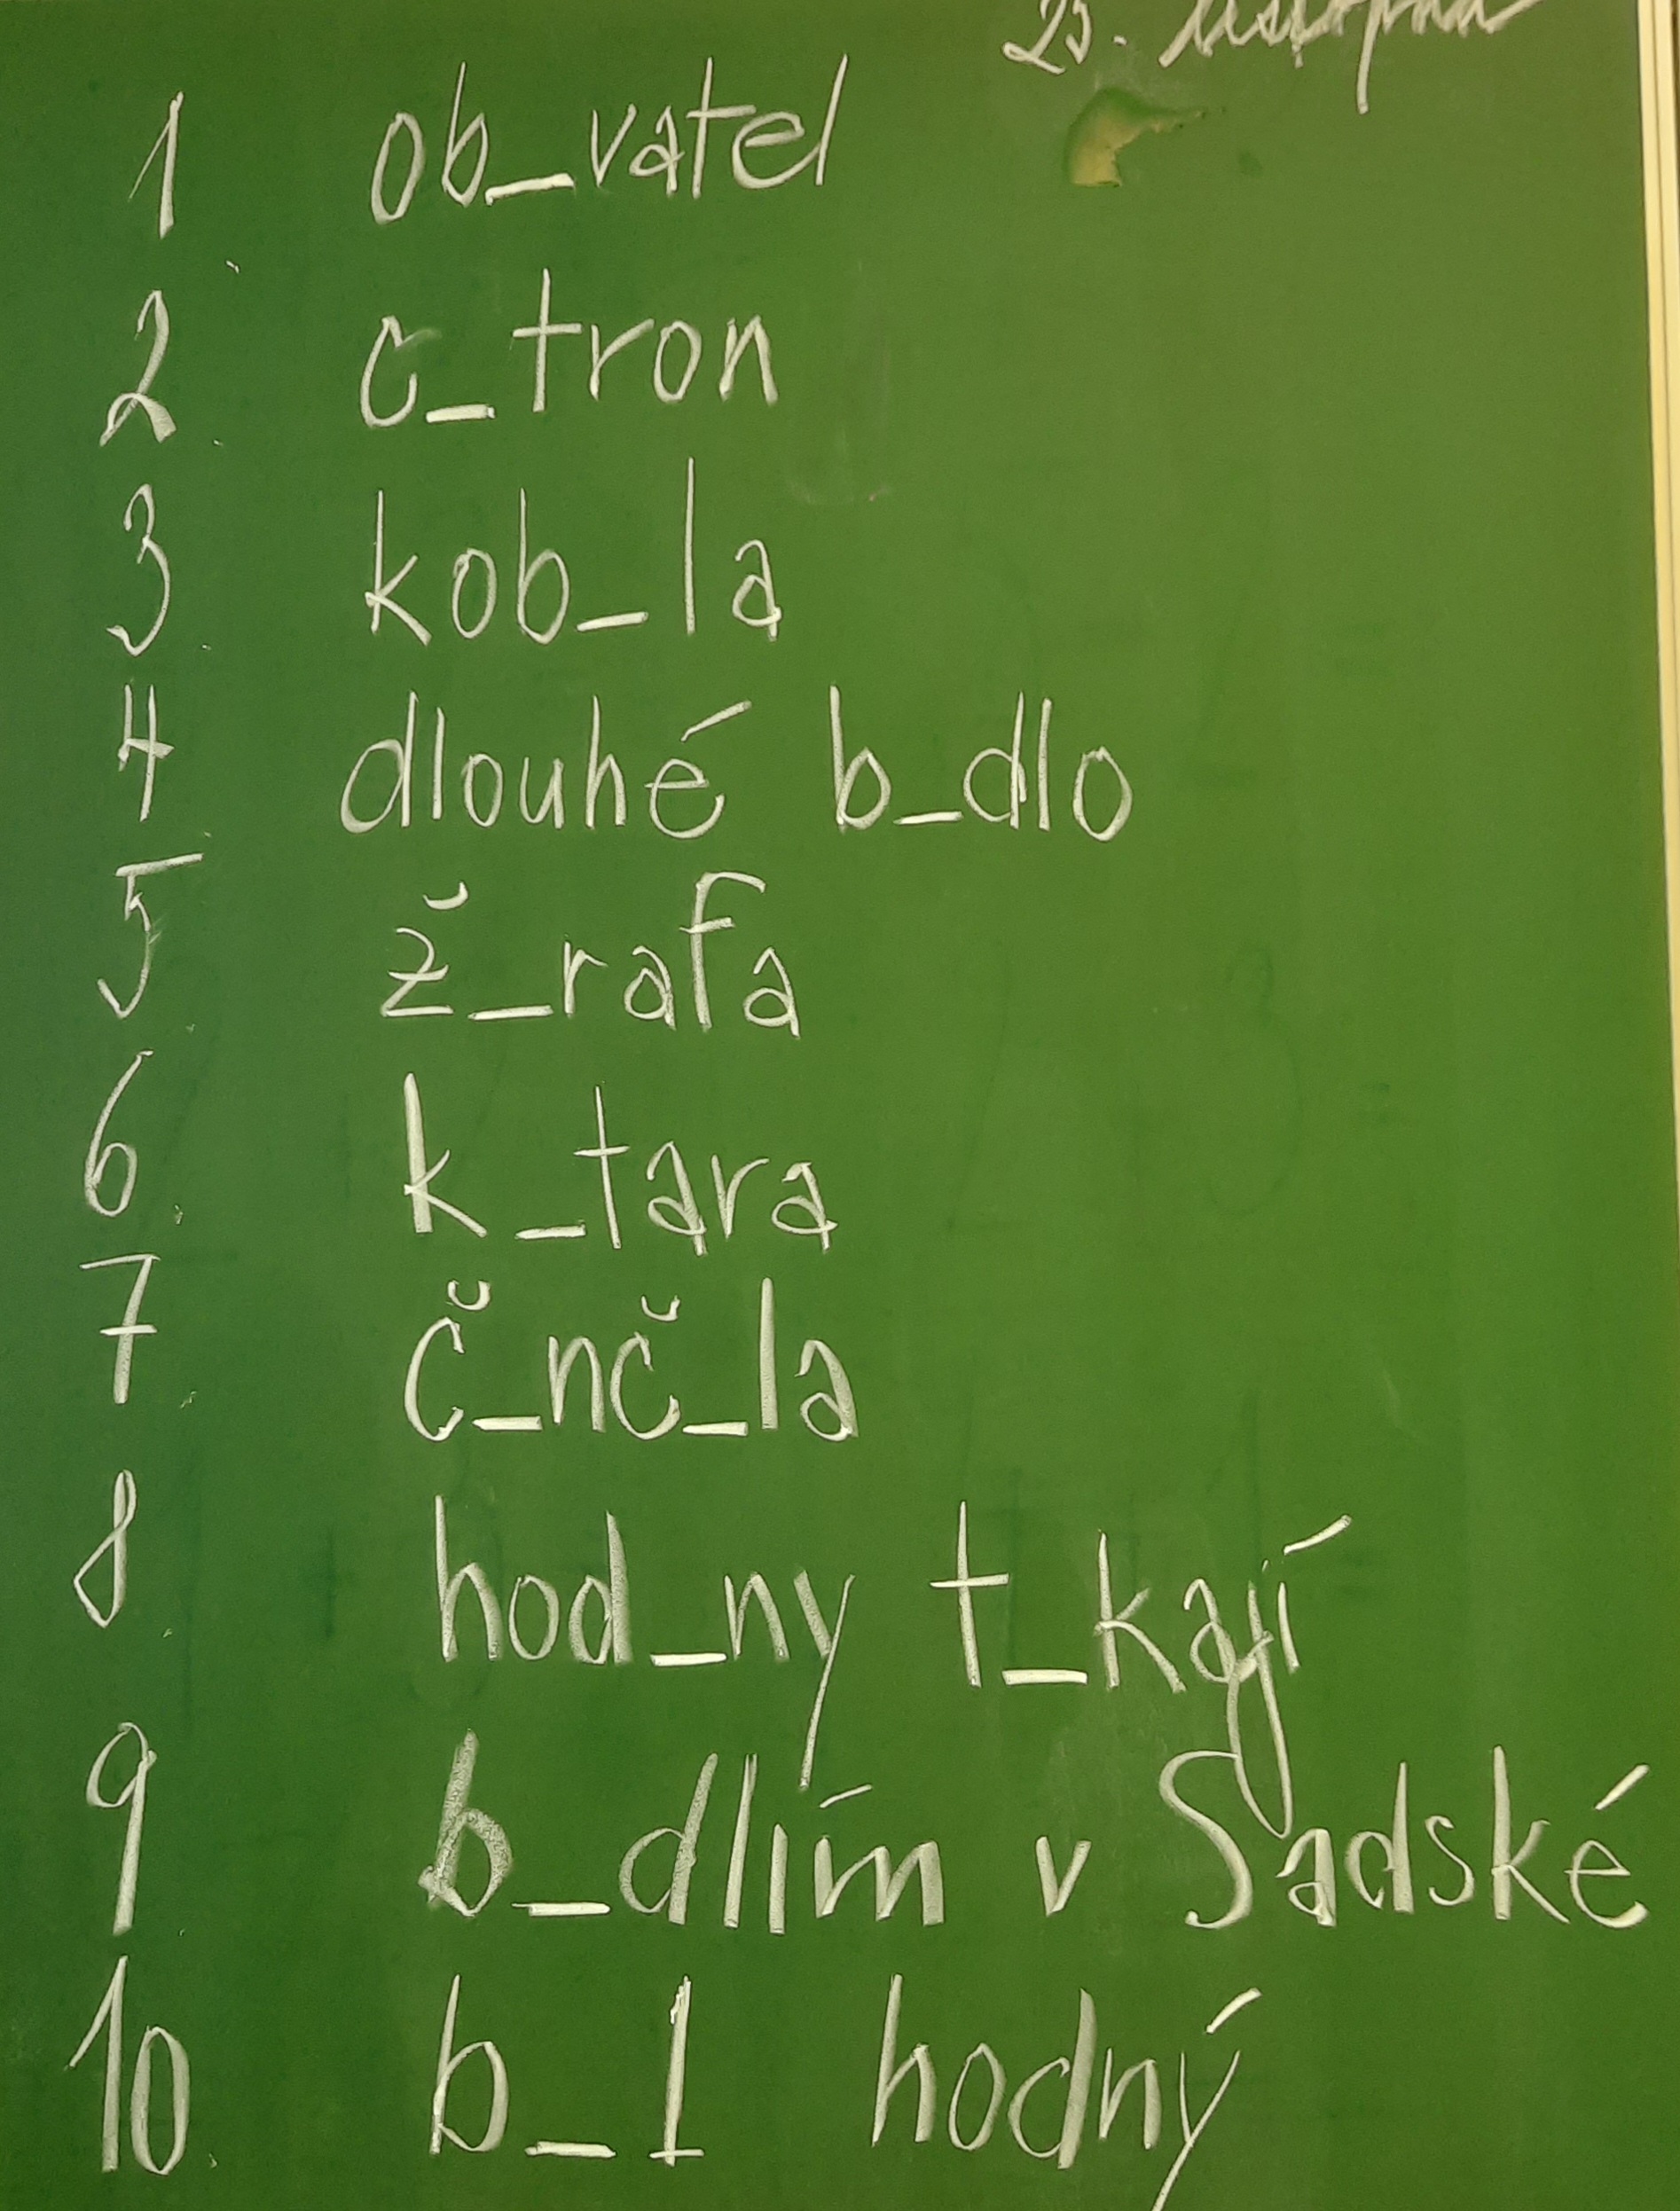 25. listopad
1 ob_vatel
2. c_tron
3. kob_la
4. dlouhé b_dlo
5. ž_rafa
6. k_tara
7. č_nč_la
8. hod_ny t_kají
9. b_dlím v Sadské
10. b_l hodný